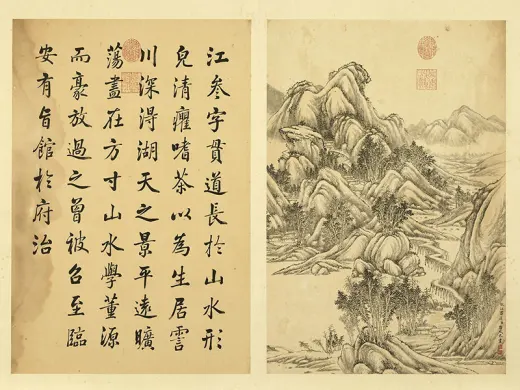 江叅字貫道長於山水形
皃清癯嗜茶以為生居霅
川深淂湖天之景平遠曠
蕩盡在方寸山水學董源
而豪放過之曾被召至臨
安有旨館於府治